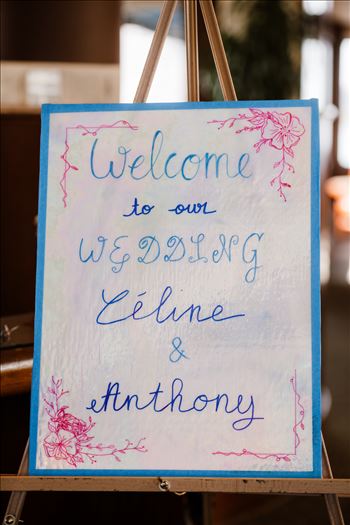 Welcome
to our
WEDDING
Céline
&
Anthony